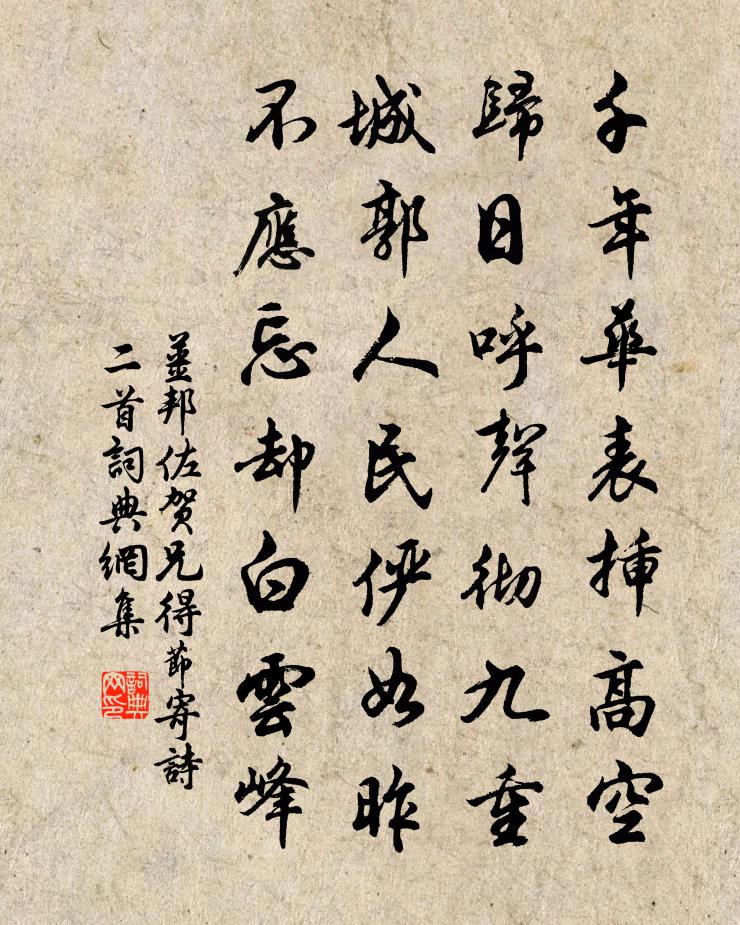 千年華表插高空
歸日呼聲徹九重
城郭人民儼如昨
不應忘却白雲峰
葉邦佐賀兄得節寄詩
二首詞典網集
詞典網印